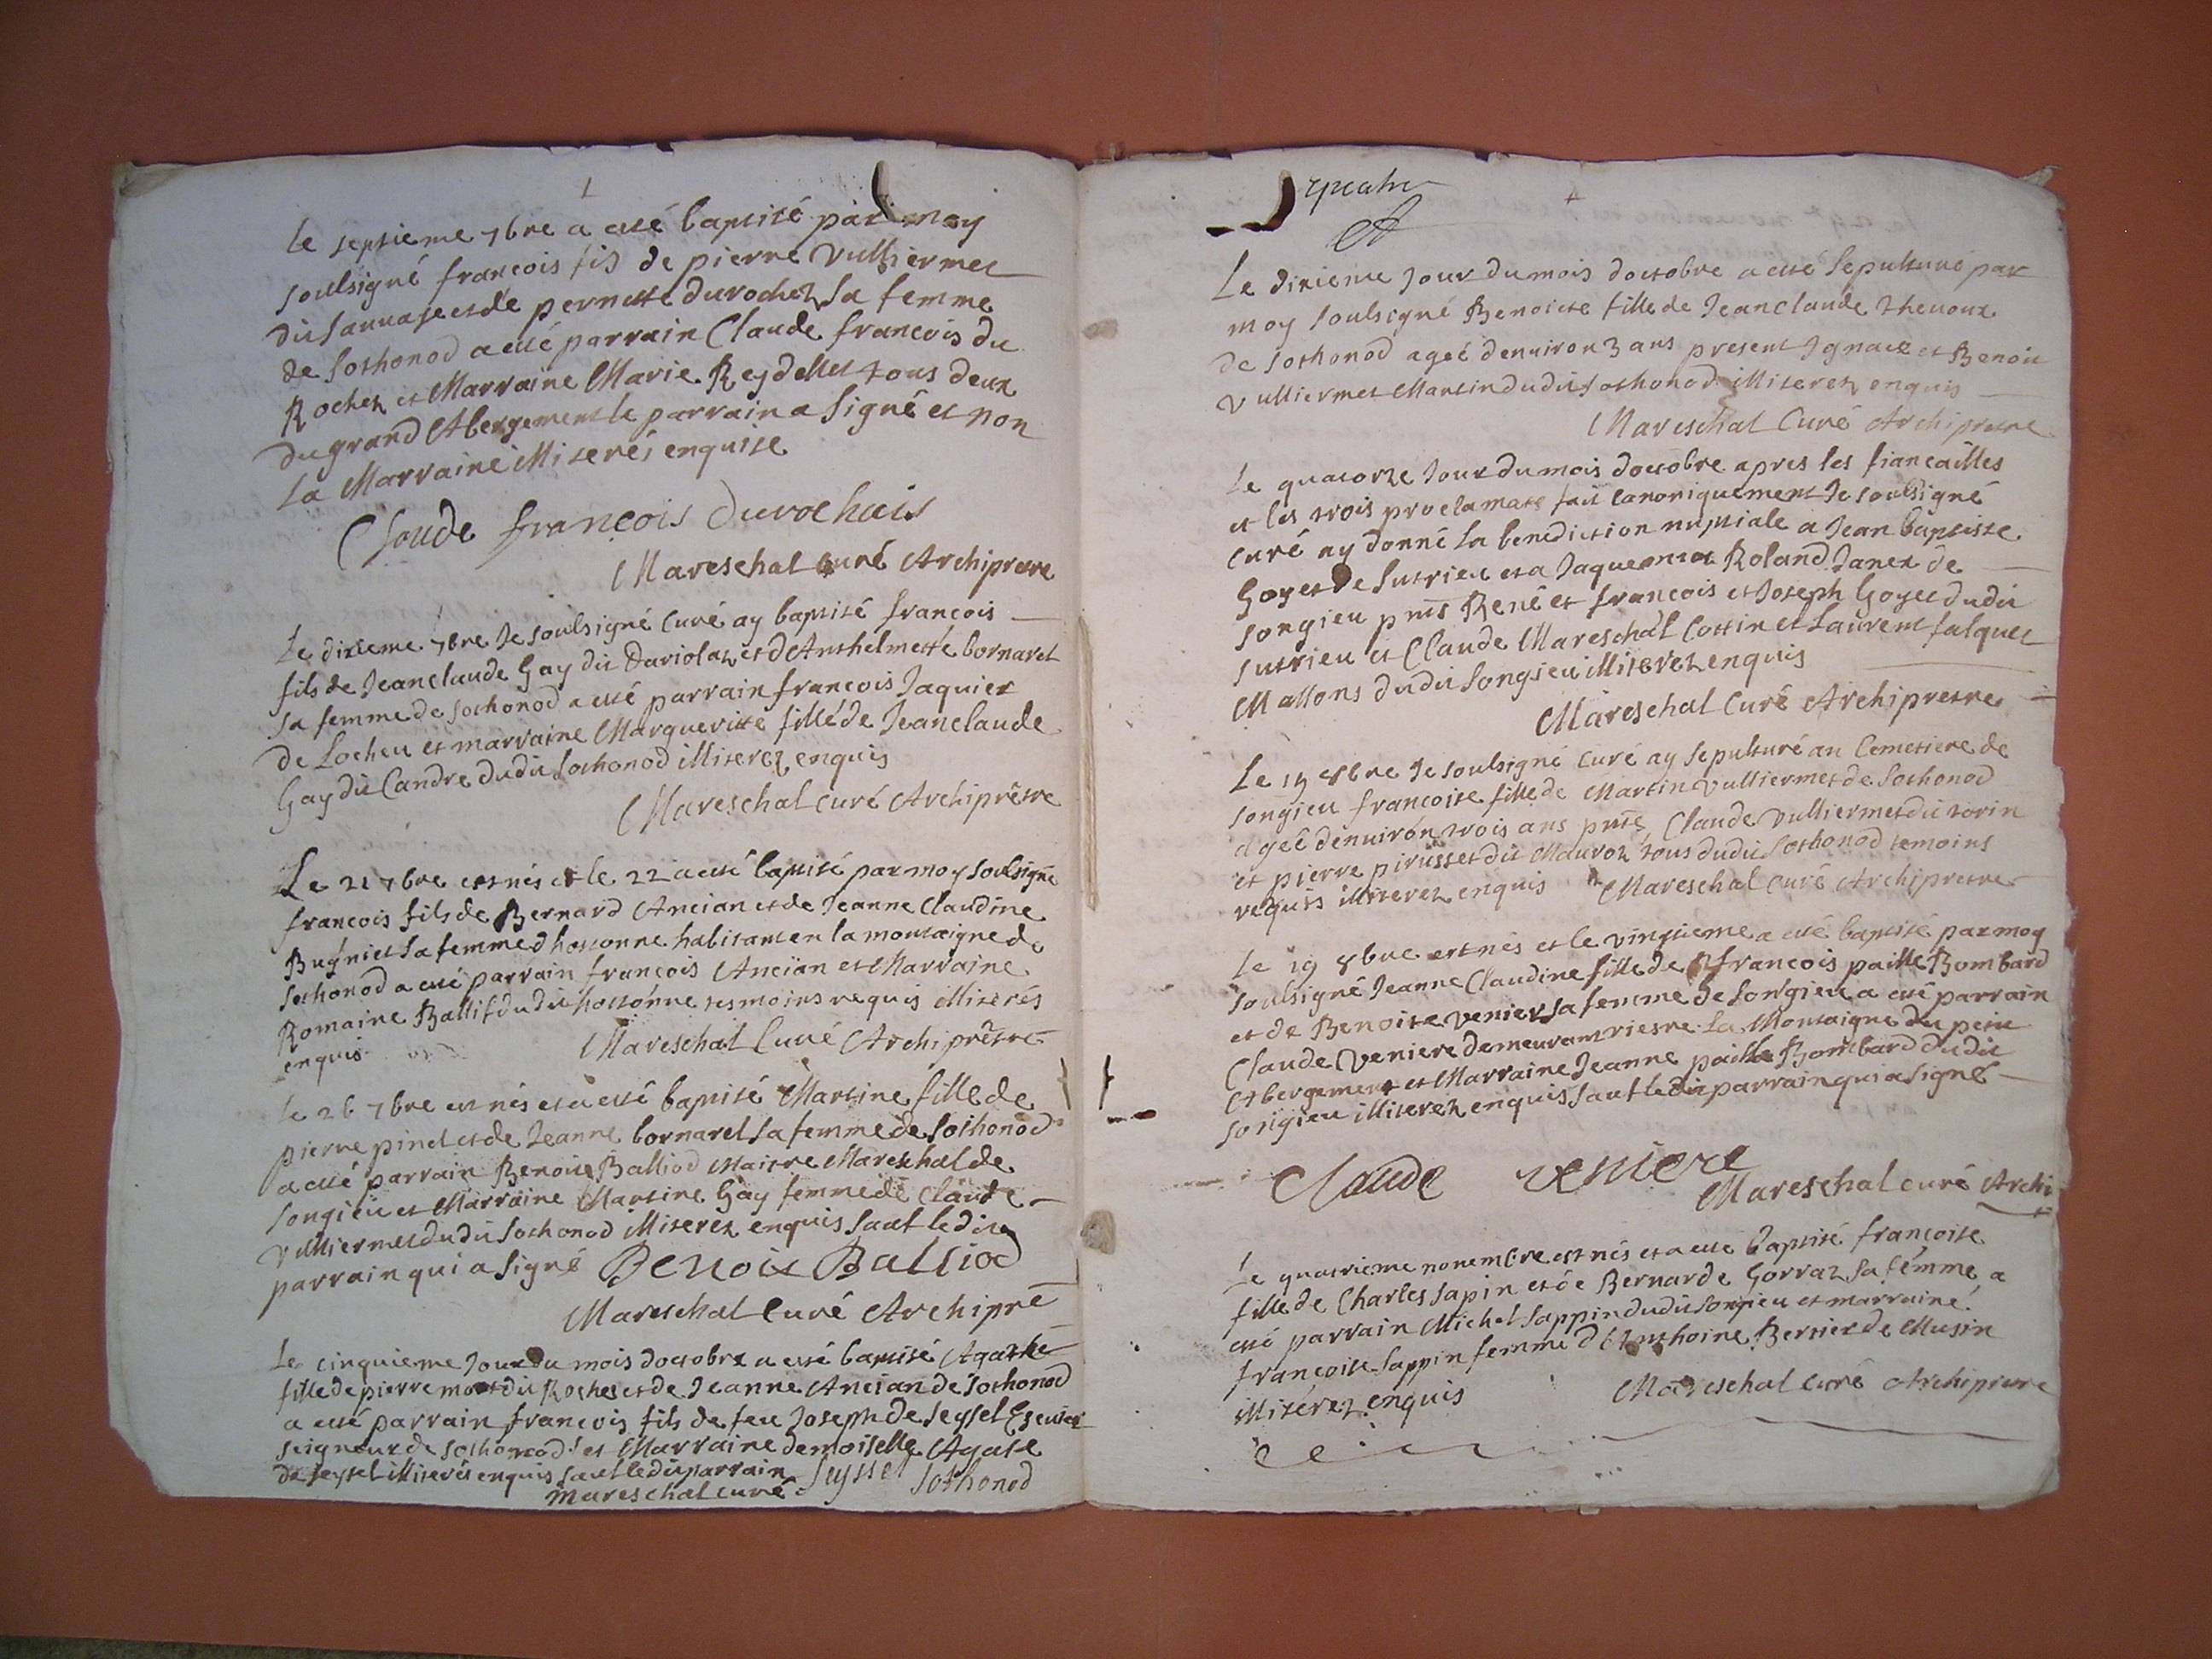 Le septieme 7bre a esté baptisé par moy
soulsigné françois fis de pierre Vulliermet
dit sauvaje et de pernette durochez sa femme
de sothonod a esté parrain Claude françois du
Rochez et Marraine Marie Reydellet tous deux
du grand Abergement le parrain a signé et non
la Marraine illiterés enquise
Claude françois durochais
Mareschal curé Archipretre
Le dixieme 7bre Je soulsigné curé ay baptisé françois
fils de Jeanclaude Gay dit Dariolaz et d'Anthelmette bornaret
sa femme de sothonod a esté parrain françois Jaquier
de Locheu et marraine Margueritte fille de Jeanclaude
Gay dit Candre dudit sothonod illiterez enquis
Mareschal curé Archiprêtre
Le 21 7bre est nés et le 22 a esté baptisé par moy soulsigné
françois fils de Bernard Ancian et de Jeanne Claudine
Bugniet sa femme d'hotonne habitant en la montaigne de
sothonod a esté parrain françois Ancian et Marraine
Romaine Ballif dudit hottonne tesmoins requis illiterés
enquis Mareschal Curé Archiprêtre
le 26 7bre est nés et a esté baptisé Martine fille de
pierre pinel et de Jeanne bornarel sa femme de sothonod
a esté parrain Benoit Balliod Maitre Mareschal de
songieu et Marraine Martine Gay femme de Claude
Vulliermet dudit sothonod illiterez enquis sauf ledit
parrain qui a signé Benoit Balliod
Mareschal Curé Archipré
Le cinquieme Jour du mois doctobre a esté baptisé Agathe
fille de pierre dit Rochez et de Jeanne Ancian de sothonod
a esté parrain françois fils de feu Joseph de seyssel Escuier
seigneur de sothonod et Marraine demoiselle Agate
de seyssel illiterés enquis sauf ledit parrain Seyssel Sothonod
Mareschal curé
quatre
4
Le dixieme Jour du mois doctobre a esté sepulturé par
moy soulsigné Benoicte fille de Jeanclaude Thevoux
de sothonod ageé denviron 3 ans present Ignace et Benoit
Vulliermet Martin dudit sothonod illiterez enquis
Mareschal Curé Archipretre
Le quatorze Jour du mois doctobre apres les fiancailles
et les trois proclamats fait canoniquement Je soulsigné
curé ay donné la benediction nuptiale a Jean baptiste
Goyet de sutrieu et a Jaquema Roland Janex de
songieu pnts René et françois et Joseph Goyet dudit
sutrieu et Claude Mareschal Cottin et Laurent falquet
Mallons dudit songieu illiterez enquis
Mareschal Curé Archipretre
Le 19 8bre Je soulsigné curé ay sepulturé au Cemetiere de
songieu françoise fille de Martin Vulliermet de sothonod
ageé denviron trois ans pnts Claude Vulliermet dit torin
et pierre pirusset dit Mauroz tous dudit sothonod temoins
requis illiterez enquis Mareschal curé Archipretre
Le 19 8bre est nés et le vingtieme a esté baptisé par moy
soulsigné Jeanne Claudine fille de françois paille Bombard
et de Benoite venier sa femme de songieu a esté parrain
Claude Veniere demeurant riesre la Montaigne du petit
Abergement et Marraine Jeanne paille Bombard dudit
songieu illiterez enquis sauf ledit parrain qui a signé
Claude veniere
Mareschal curé Archi
Le quatrieme novembre est nés et a esté baptisé françoise
fille de Charles sapin et de Bernarde Gorraz sa femme a
esté parrain Michel sappin dudit songieu et marraine
françoise sappin femme d'Anthoine Bertier de Musin
illiterez enquis Mareschal curé Archipretre